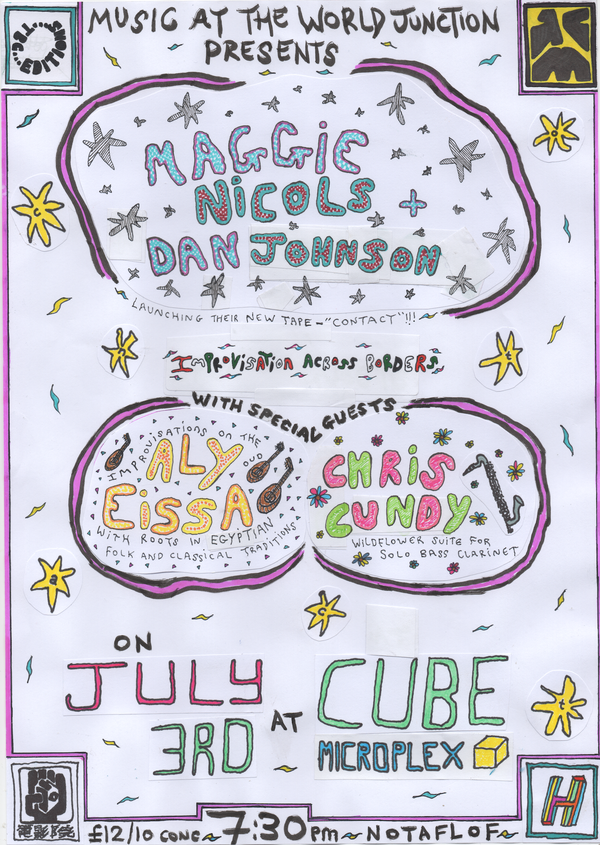 TBC... EDITIONS
MUSIC AT THE WORLD JUNCTION
PRESENTS
MAGGiE
NiCOLS +
DAN JOHNSON
LAUNCHING THEIR NEW TAPE - "CONTACT"!!!
IMPROVISATION ACROSS BORDERS
WITH SPECIAL GUESTS
IMPROVISATIONS ON THE
OUD
ALY
EiSSA
WITH ROOTS IN EGYPTIAN
FOLK AND CLASSICAL TRADITIONS
CHRiS
CUNDY
WILDFLOWER SUITE FOR
SOLO BASS CLARINET
c
o
n
t
a
c
t
ON
JULY
3RD
AT
CUBE
MICROPLEX
H
£12/10 CONC ~ 7:30PM ~ NOTAFLOF ~